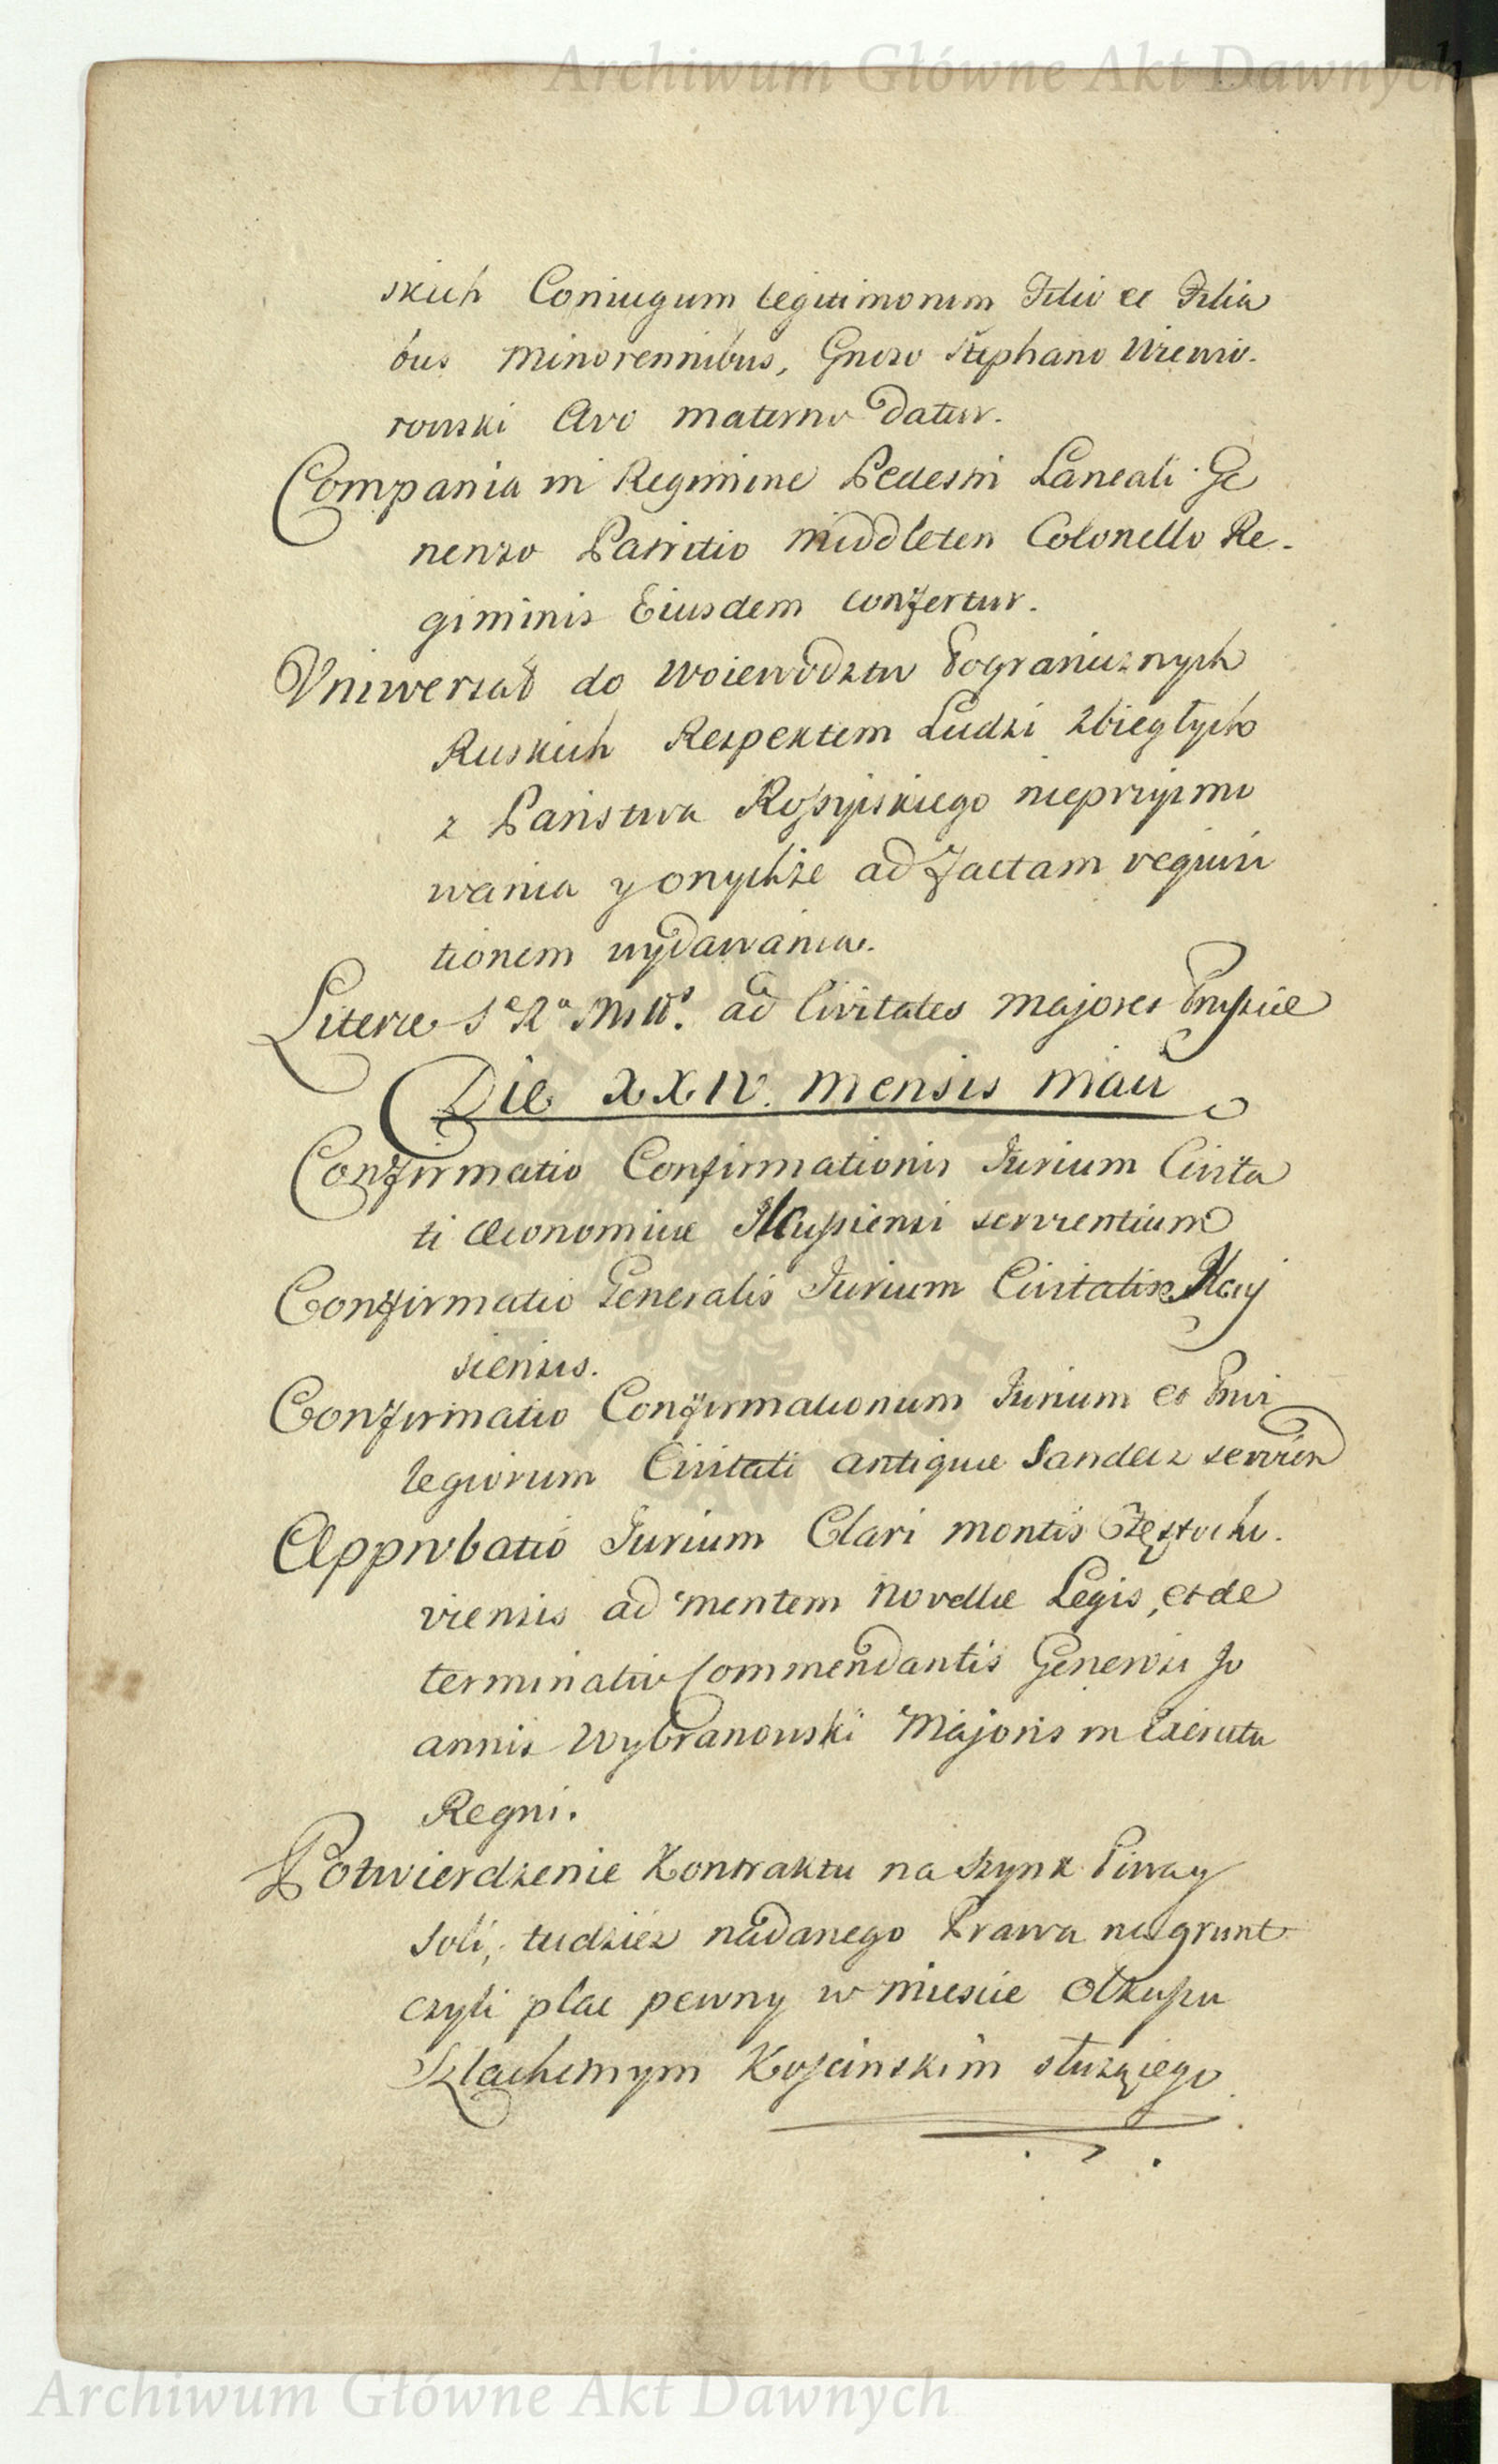 Archiwum Główne Akt Dawnych
skich Coniugum legitimorum Filio et Filia
bus Minorennibus, Gnoso Stephano
rowski Avo materno datur.
Compania in Regimine Pedestri Laneali Ge
neroso Patritio Middleten Colonello Re-
giminis Eiusdem confertur.
Vniwersał do Woiewodztw Pogranicznych
Ruskich Respektem Ludzi zbiegłych
z Państwa Rossyiskiego nieprzyimo
wania y onychże ad factam requisi
tionem wydawania.
Literæ S. R. Mttis. ad Civitates Majores Prussiæ
Die XXIV. Mensis Maii
Confirmatio Confirmationis Iurium Civita
ti Œconomiæ servientium
Confirmatio Generalis Iurium Civitatis
siensis.
Confirmatio Confirmationum Iurium et Privi
legiorum Civitati antiquæ Sandecz servien
Approbatio Iurium Clari Montis Częstocho.
viensis ad mentem Novellæ Legis, et de
terminatio Commendantis Generosi Jo
annis Wybranowski Majoris in Exercitu
Regni.
Potwierdzenie Kontraktu na Szynk Piwa y
Soli, tudziez nadanego Prawa na grunt
czyli plac pewny w miescie Olkuszu
Szlachetnym Koscinskim służącego
Archiwum Główne Akt Dawnych